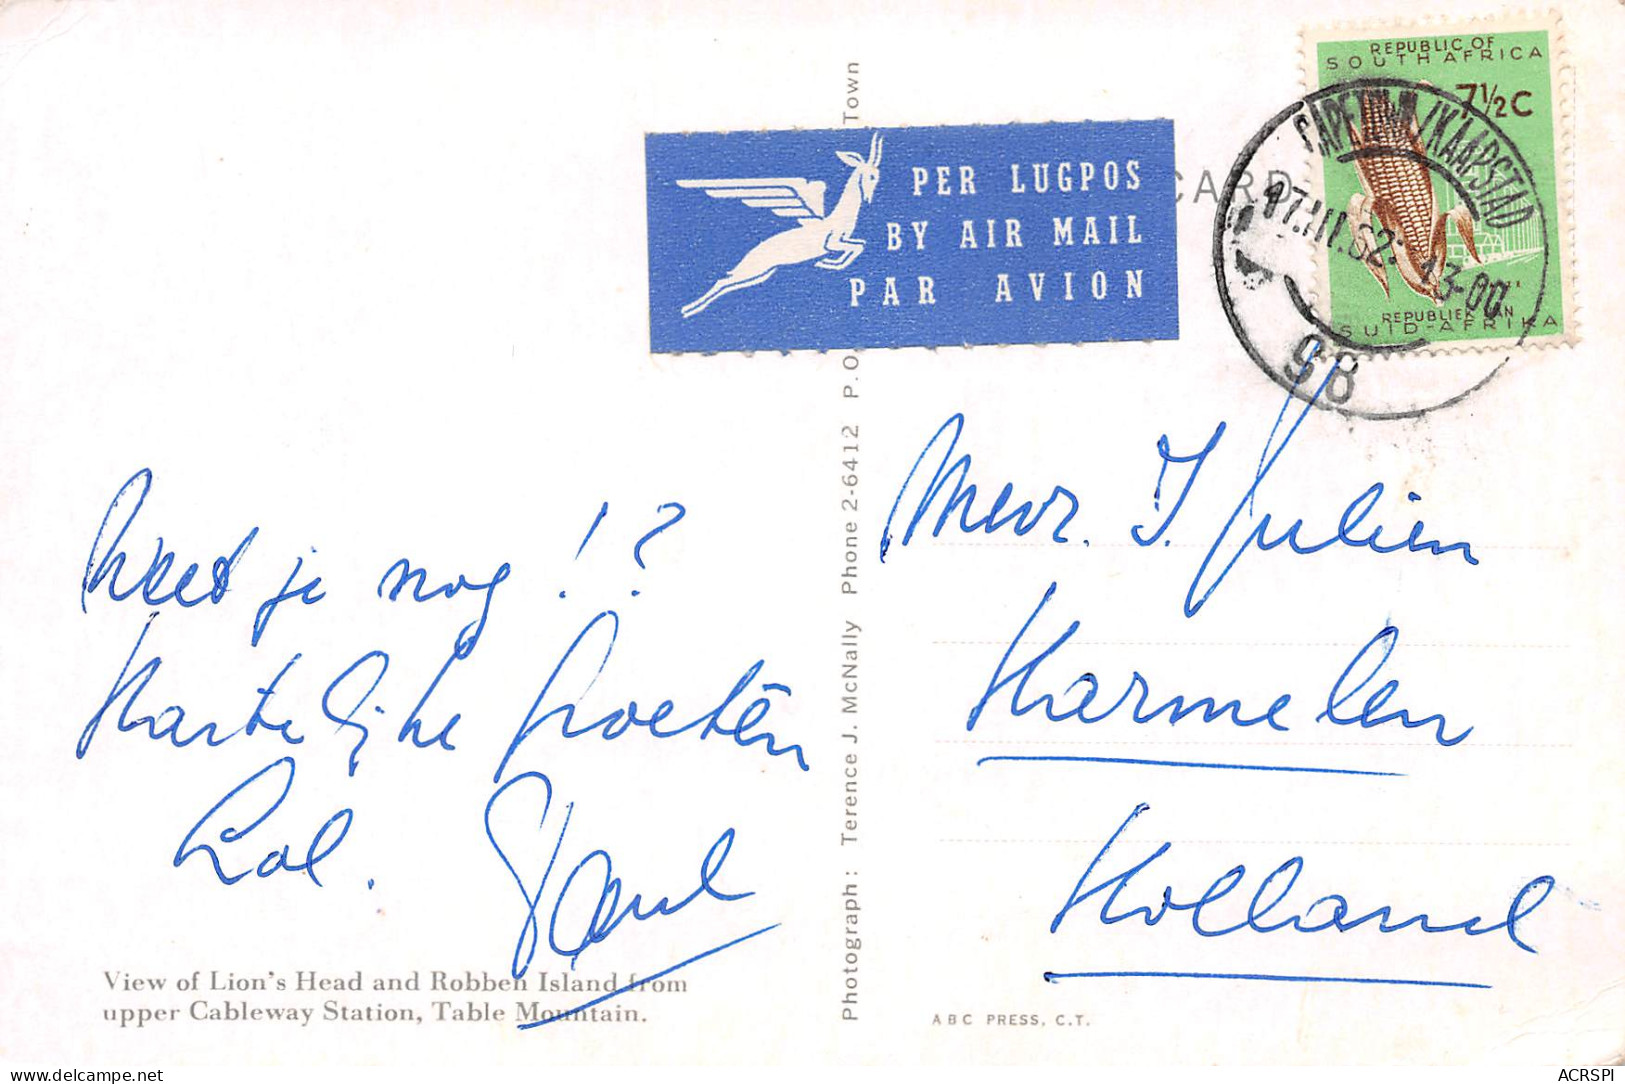 REPUBLIC OF
SOUTH AFRICA
7½C
REPUBLIEK VAN
SUID-AFRIKA
CAPE TOWN/KAAPSTAD
17.III.62: 13-00
PER LUGPOS
BY AIR MAIL
PAR AVION
CARD
Weet je nog!?
Hartelijke Groeten
Lol.
Paul
View of Lion's Head and Robben Island from
upper Cableway Station, Table Mountain.
Photograph: Terence J. McNally Phone 2-6412 P.O. Town
Mevr. J. Julien
Harmelen
Holland
ABC PRESS, C.T.
ACRSPI